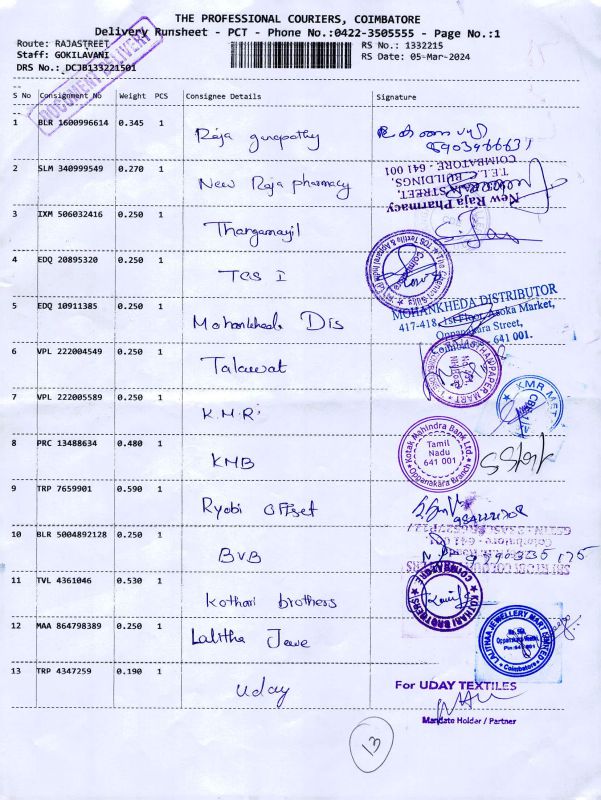 THE PROFESSIONAL COURIERS, COIMBATORE
Delivery Runsheet - PCT - Phone No.:0422-3505555 - Page No.:1
Route: RAJASTREET
Staff: GOKILAVANI
DRS No.: DCJB133221501
RS No.: 1332215
RS Date: 05-Mar-2024
DOCUMENT DELIVERY
S No Consignment No Weight PCS Consignee Details Signature
1 BLR 1600996614 0.345 1 Raja ganapathy
2 SLM 340999549 0.270 1 New Raja pharmacy
New Raja Pharmacy
COIMBATORE - 641 001
3 IXM 506032416 0.250 1 Thangamayil
4 EDQ 20895320 0.250 1 TCS I
5 EDQ 10911385 0.250 1 Mohankheda Dis
MOHANKHEDA DISTRIBUTOR
417-418, 1st Floor, Asoka Market,
Oppanakara Street,
641 001.
6 VPL 222004549 0.250 1 Talawat
7 VPL 222005589 0.250 1 K.M.R.
KMR MET
8 PRC 13488634 0.480 1 KMB
Kotak Mahindra Bank Ltd.
Tamil
Nadu
641 001
Oppanakara Branch
9 TRP 7659901 0.590 1 Ryobi Offset
10 BLR 5004892128 0.250 1 BVB
11 TVL 4361046 0.530 1 Kothari brothers
KOTHARI BROTHERS
COIMBATORE
12 MAA 864798389 0.250 1 Lalitha Jewe
LALITHAA JEWELLERY MART LIMITED
Coimbatore
13 TRP 4347259 0.190 1 Uday
For UDAY TEXTILES
Mandate Holder / Partner
13